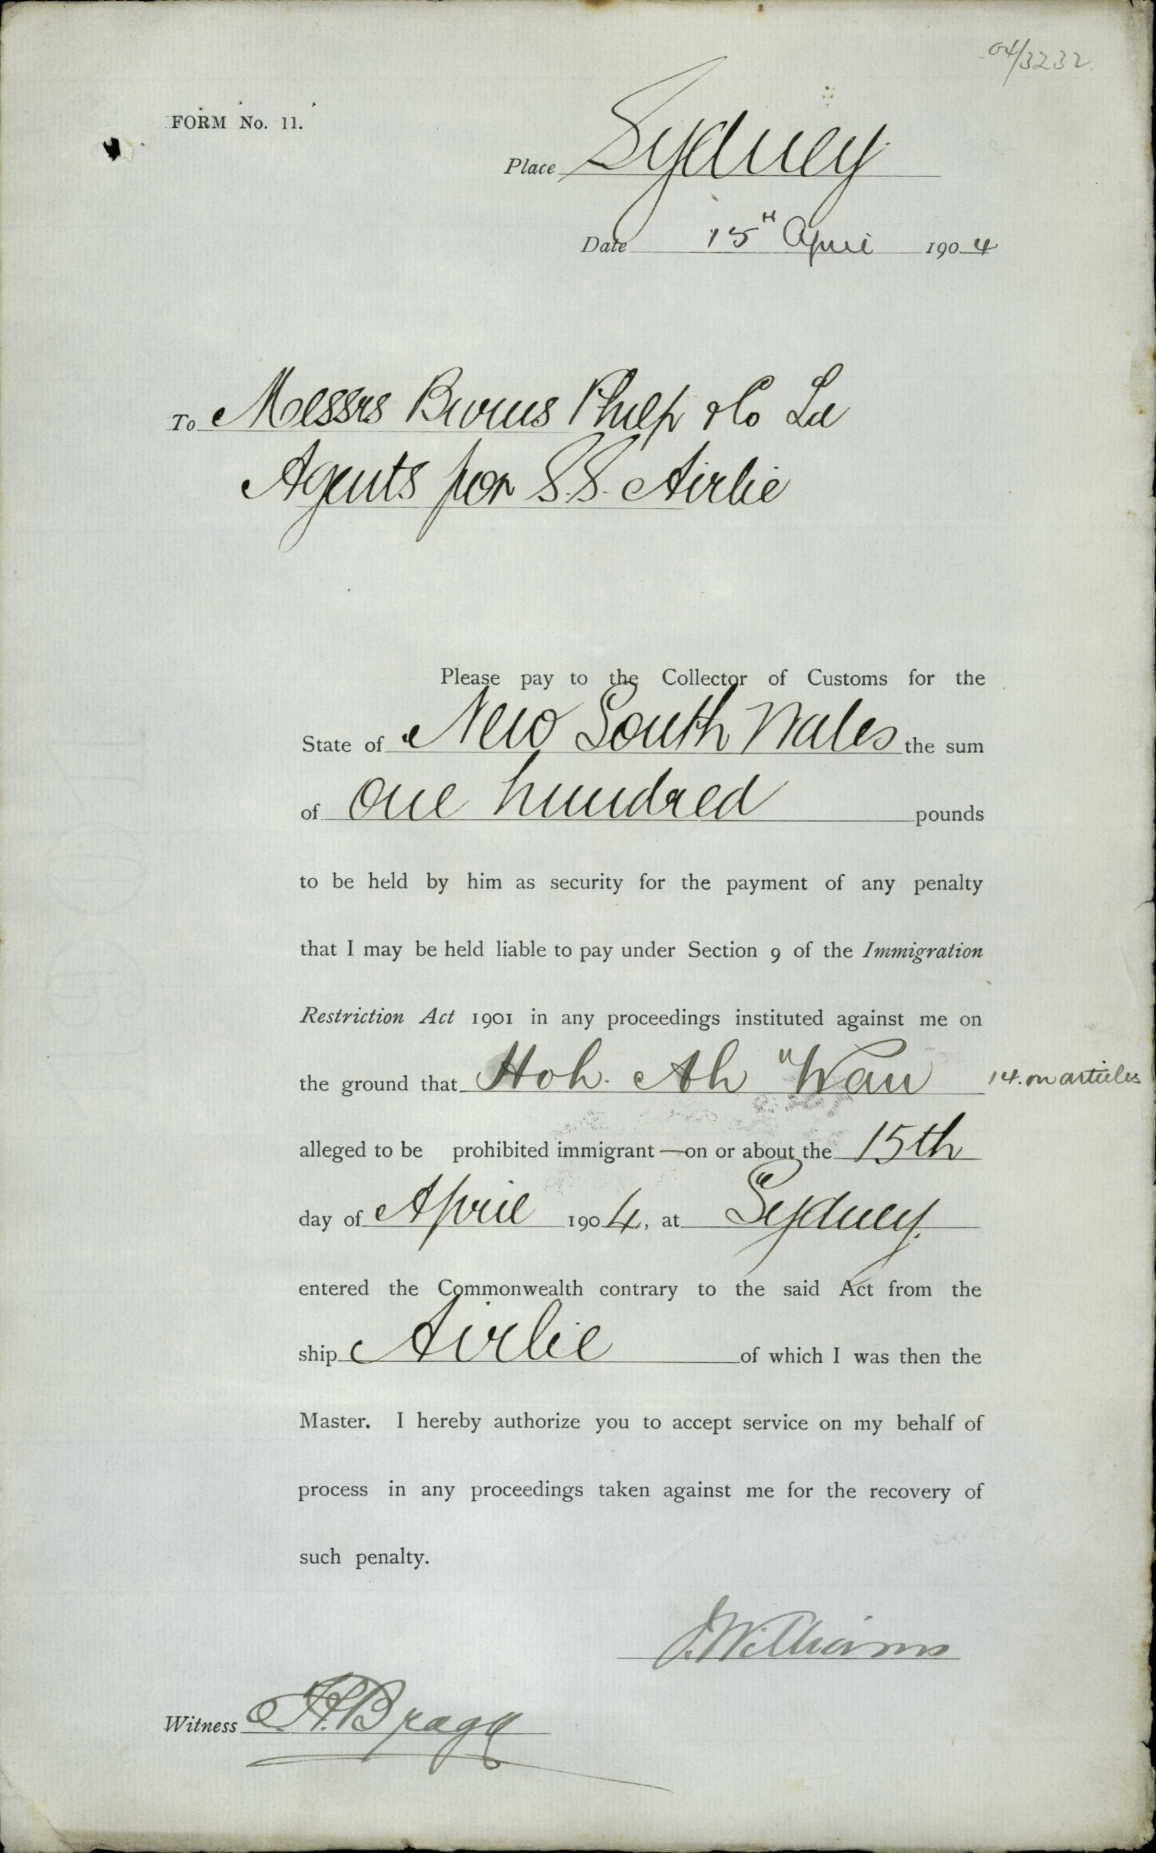 04/3232
FORM No. 11.
Place Sydney
Date 15th April 1904
To Messrs Burns Philp & Co Ld
Agents for S.S. Airlie
Please pay to the Collector of Customs for the
State of New South Wales the sum
of one hundred pounds
to be held by him as security for the payment of any penalty
that I may be held liable to pay under Section 9 of the Immigration
Restriction Act 1901 in any proceedings instituted against me on
the ground that Hoh. Ah Wan 14. on articles
alleged to be prohibited immigrant—on or about the 15th
day of April 1904, at Sydney.
entered the Commonwealth contrary to the said Act from the
ship Airlie of which I was then the
Master. I hereby authorize you to accept service on my behalf of
process in any proceedings taken against me for the recovery of
such penalty.
J. Williams
Witness H. Bragg